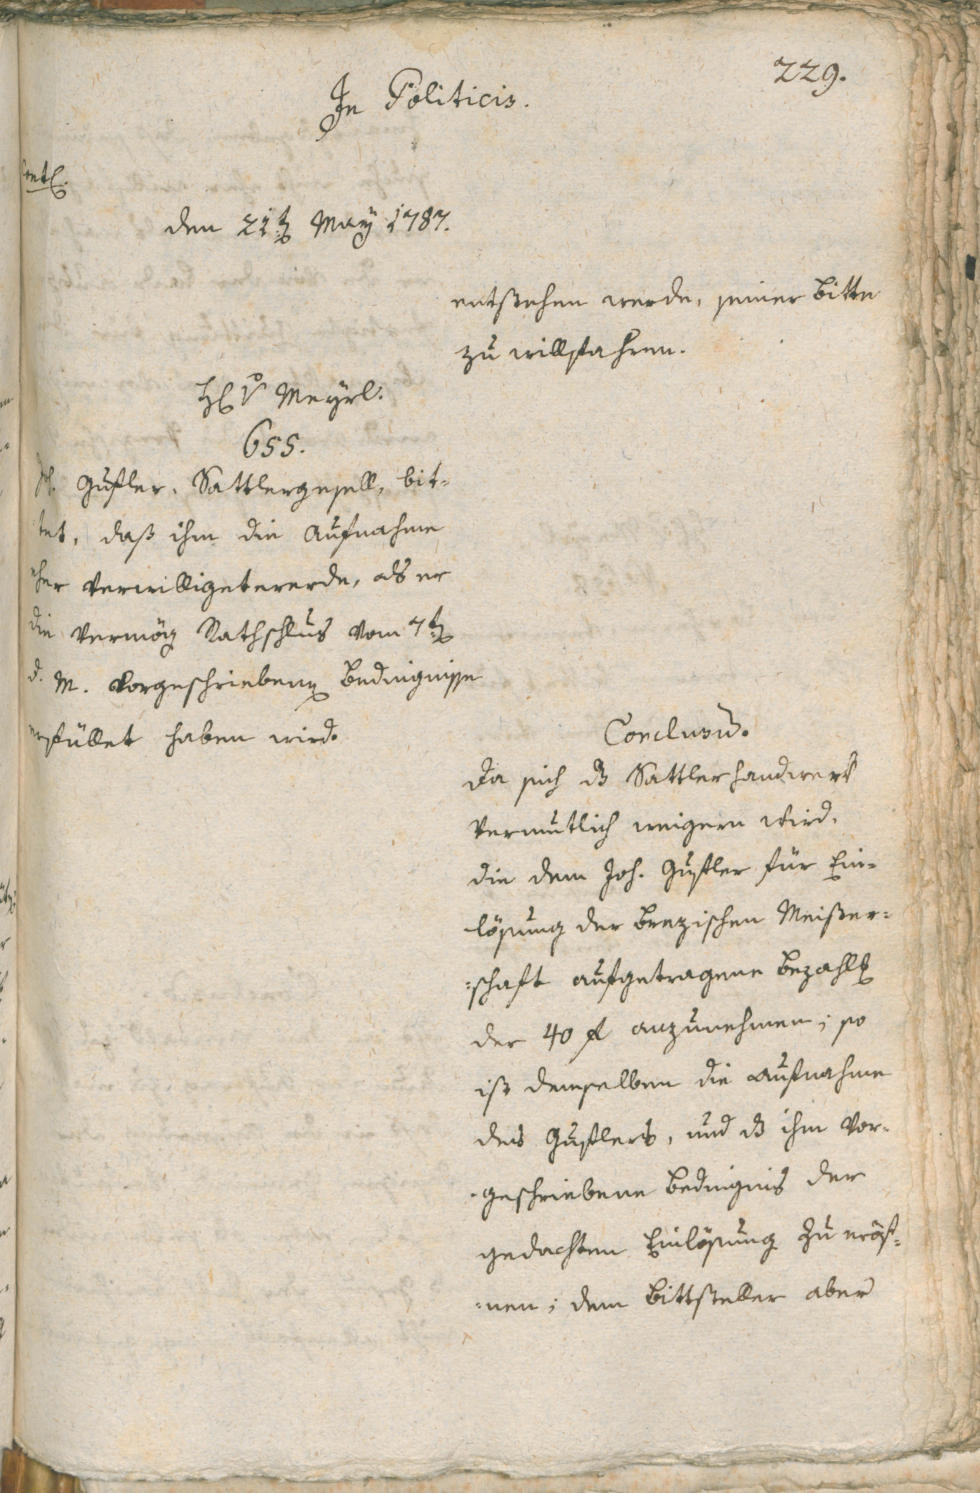 229.
In Politicis.
den 21t May 1787.
entstehen werde, seiner Bitte
zu willfahren.
H Meyrl:
655.
Joh. Gustler, Sattlergesell, bit-
tet, daß ihm die Aufnahme
eher verwilliget werde, als er
die vermög Rathschlus vom 7t
d. M. vorgeschriebene Bedingnisse
erfüllet haben wird.
Conclusum.
Da sich das Sattlerhandwerk
vermutlich weigern wird,
die dem Joh. Gustler für Ein-
lösung der Brezischen Meister-
schaft aufgetragene Bezahlg
der 40 f anzunehmen; so
ist demselben die Aufnahme
des Gustlers, und das ihm vor-
geschriebene Bedingnis der
gedachten Einlösung zu eröf-
nen; dem Bittsteller aber